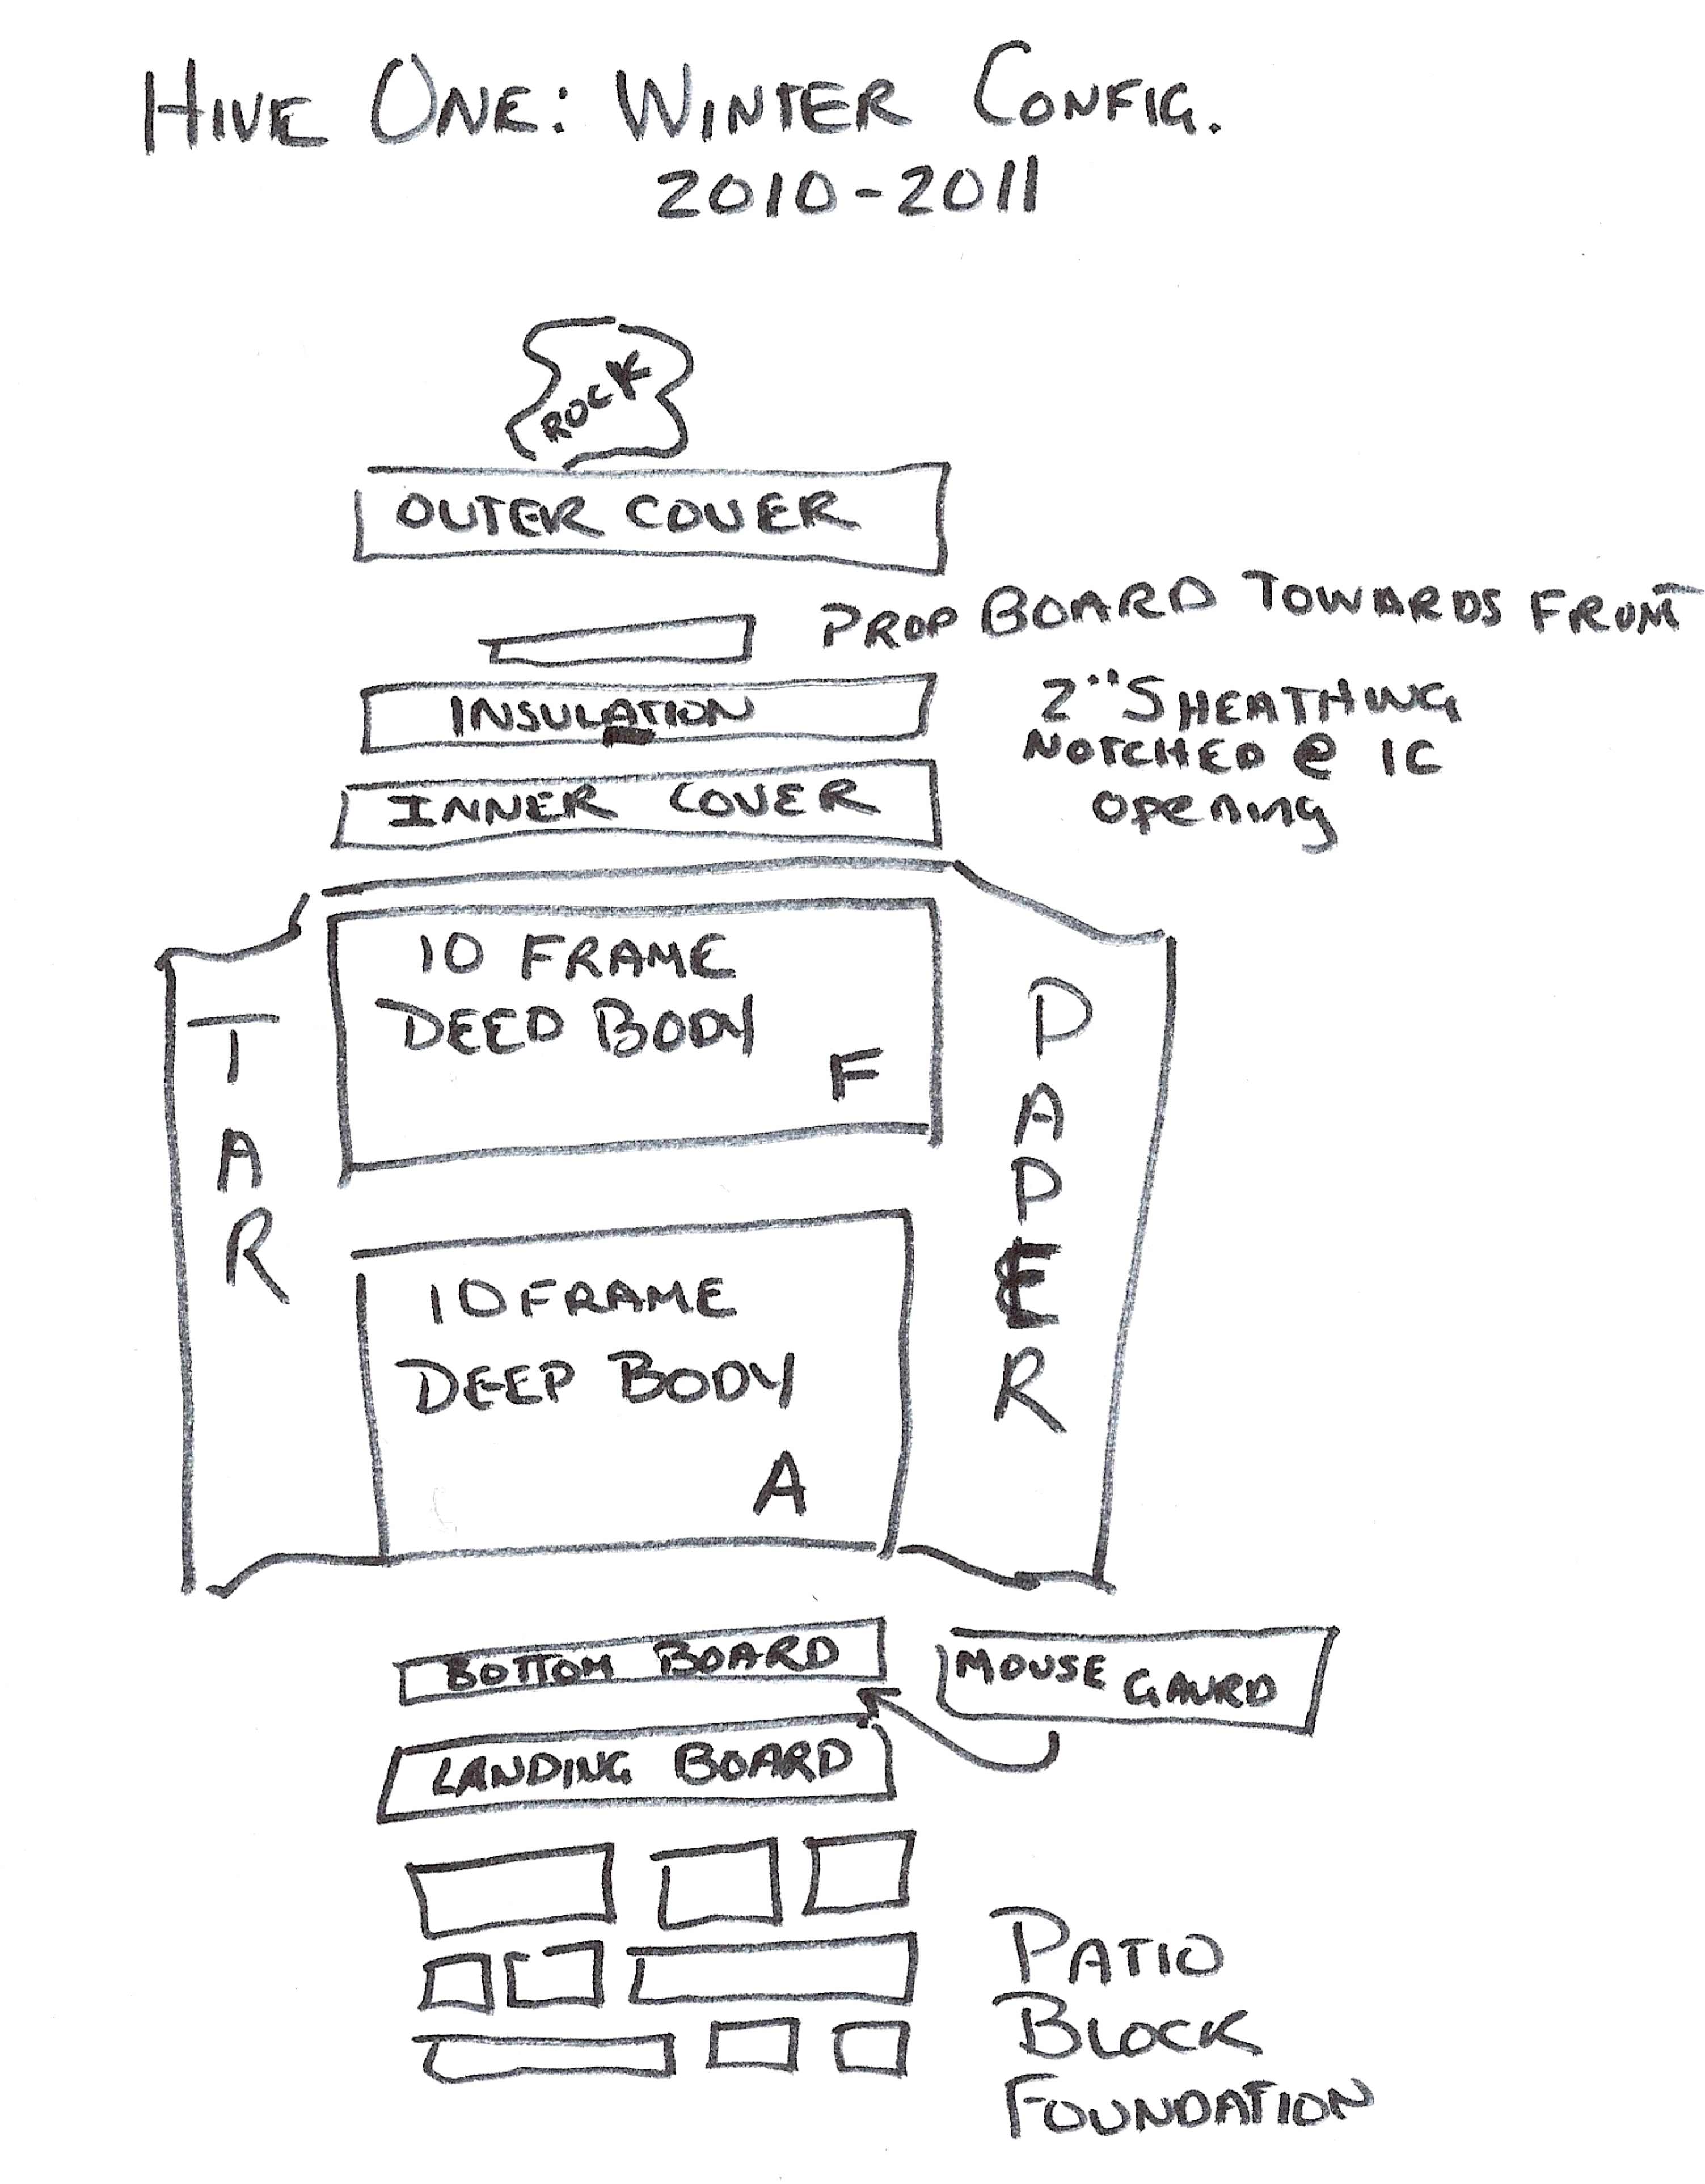 HIVE ONE: WINTER CONFIG.
2010-2011
ROCK
OUTER COVER
PROP BOARD TOWARDS FRONT
INSULATION
2" SHEATHING
NOTCHED @ IC
OPENING
INNER COVER
10 FRAME
DEED BODY
F
TAR
PAPER
10 FRAME
DEEP BODY
A
BOTTOM BOARD
MOUSE GAURD
LANDING BOARD
PATIO
BLOCK
FOUNDATION